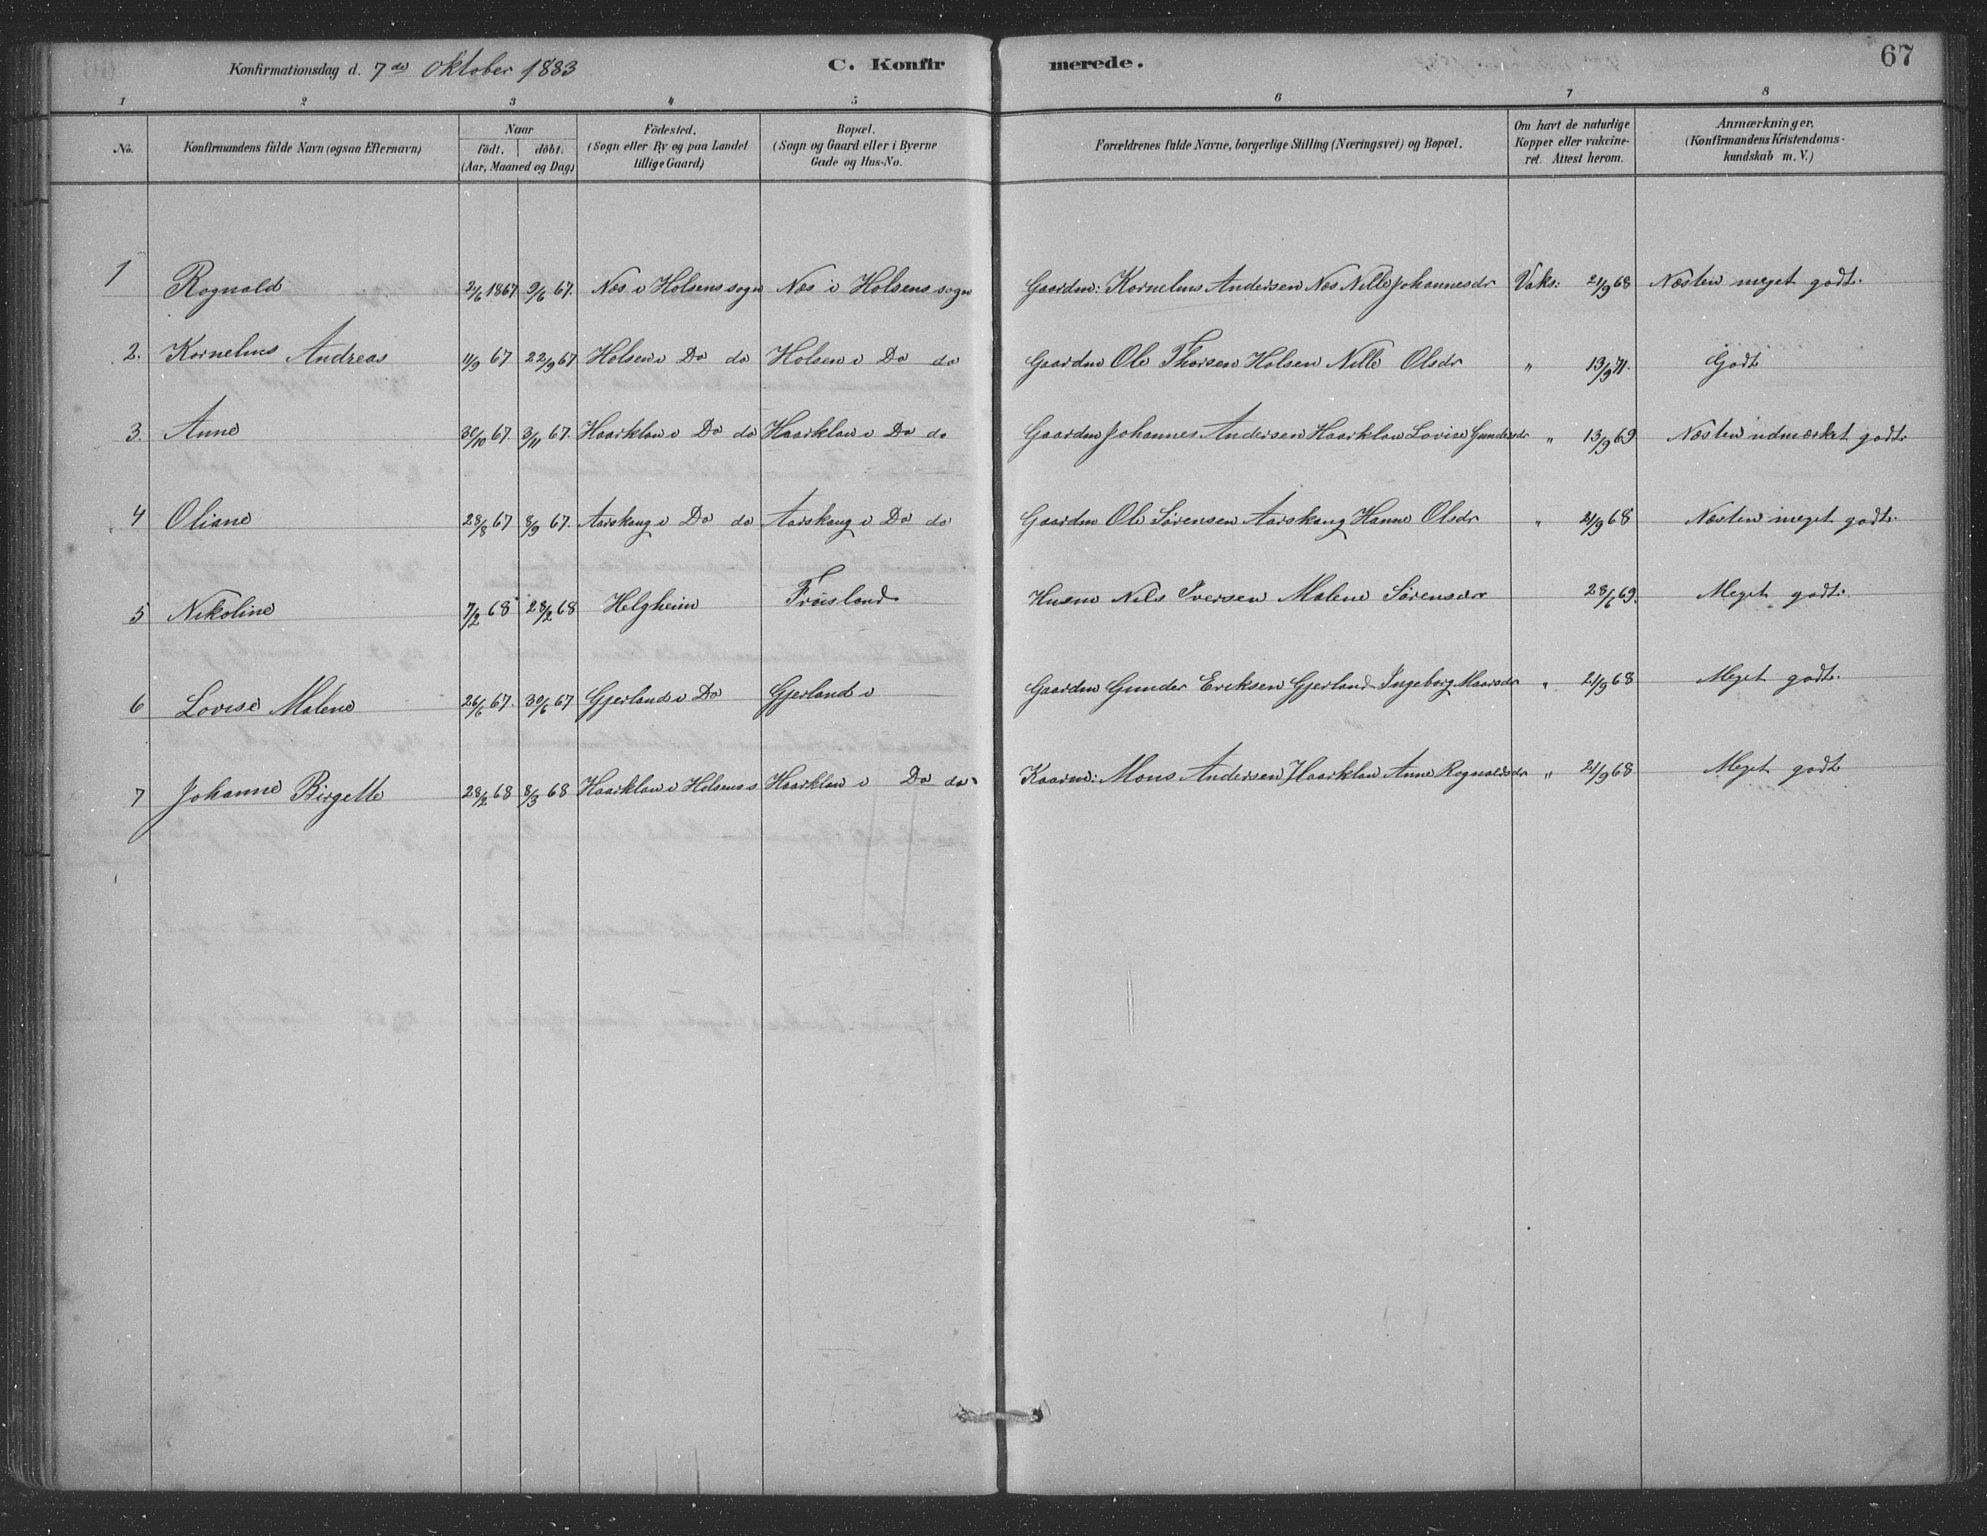 Konfirmationsdag d. 7de Oktober 1883 C. Konfirmerede. 67
1 2 3 4 5 6 7 8
No. Konfirmandens fulde Navn (ogsaa Efternavn) Naar födt. döbt. (Aar, Maaned og Dag) Födested. (Sogn eller By og paa Landet tillige Gaard) Bopæl. (Sogn og Gaard eller i Byerne Gade og Hus-No. Forældrenes fulde Navne, borgerlige Stilling (Næringsvei) og Bopæl. Om havt de naturlige Kopper eller vakcineret. Attest herom. Anmærkninger, (Konfirmandens Kristendomskundskab m. V.)
1 Rognald 2/6 1867 9/6 67. Næs i Holsens sogn Næs i Holsens sogn Gaardm: Kornelius Andersen Næs Nille Johannesdr Vaks: 21/9 68 Næsten meget godt.
2. Kornelius Andreas 11/9 67 22/9 67 Holsen i Do do Holsen i Do do Gaardm Ole Thorsen Holsen Nille Olsdr " 13/9 71. Godt
3. Anne 30/10 67. 3/11 67. Haarklau i Do do Haarklau i Do do Gaardm Johannes Andersen Haarklau Lovise Gundersdr " 13/9 69 Næsten udmærket godt.
4 Oliane 28/8 67 8/9 67. Aarskaug i Do do Aarskaug i Do do Gaardm Ole Sörensen Aarskaug Hanne Olsdr " 21/9 68 Næsten meget godt.
5 Nikoline 7/2 68 23/2 68 Helgheim Fröisland Husm Nils Iversen Malene Sörensdr 28/6 69. Meget godt.
6 Lovise Malene 26/6 67. 30/6 67 Gjerland i Do Gjerland i — Gaardm Gunder Eriksen Gjerland Ingeborg Maarsdr " 21/9 68 Meget godt.
7 Johanne Birgette 28/2 68 8/3 68 Haarklau i Holsens s Haarklau i Do do Kaarm: Mons Andersen Haarklau Anne Rognaldsdr " 21/9 68 Meget godt